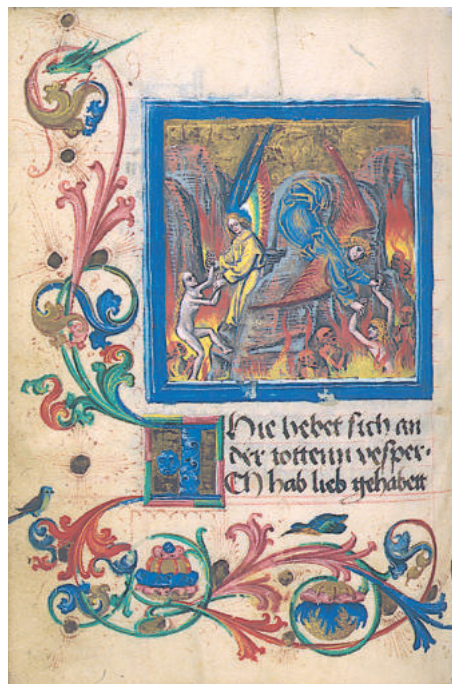 Hie hebet sich an
der tottenn vesper·
ICh hab lieb gehabett